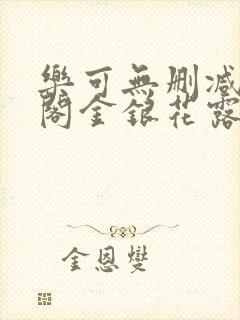 樂可無删减
閣金銀花露
金恩燮